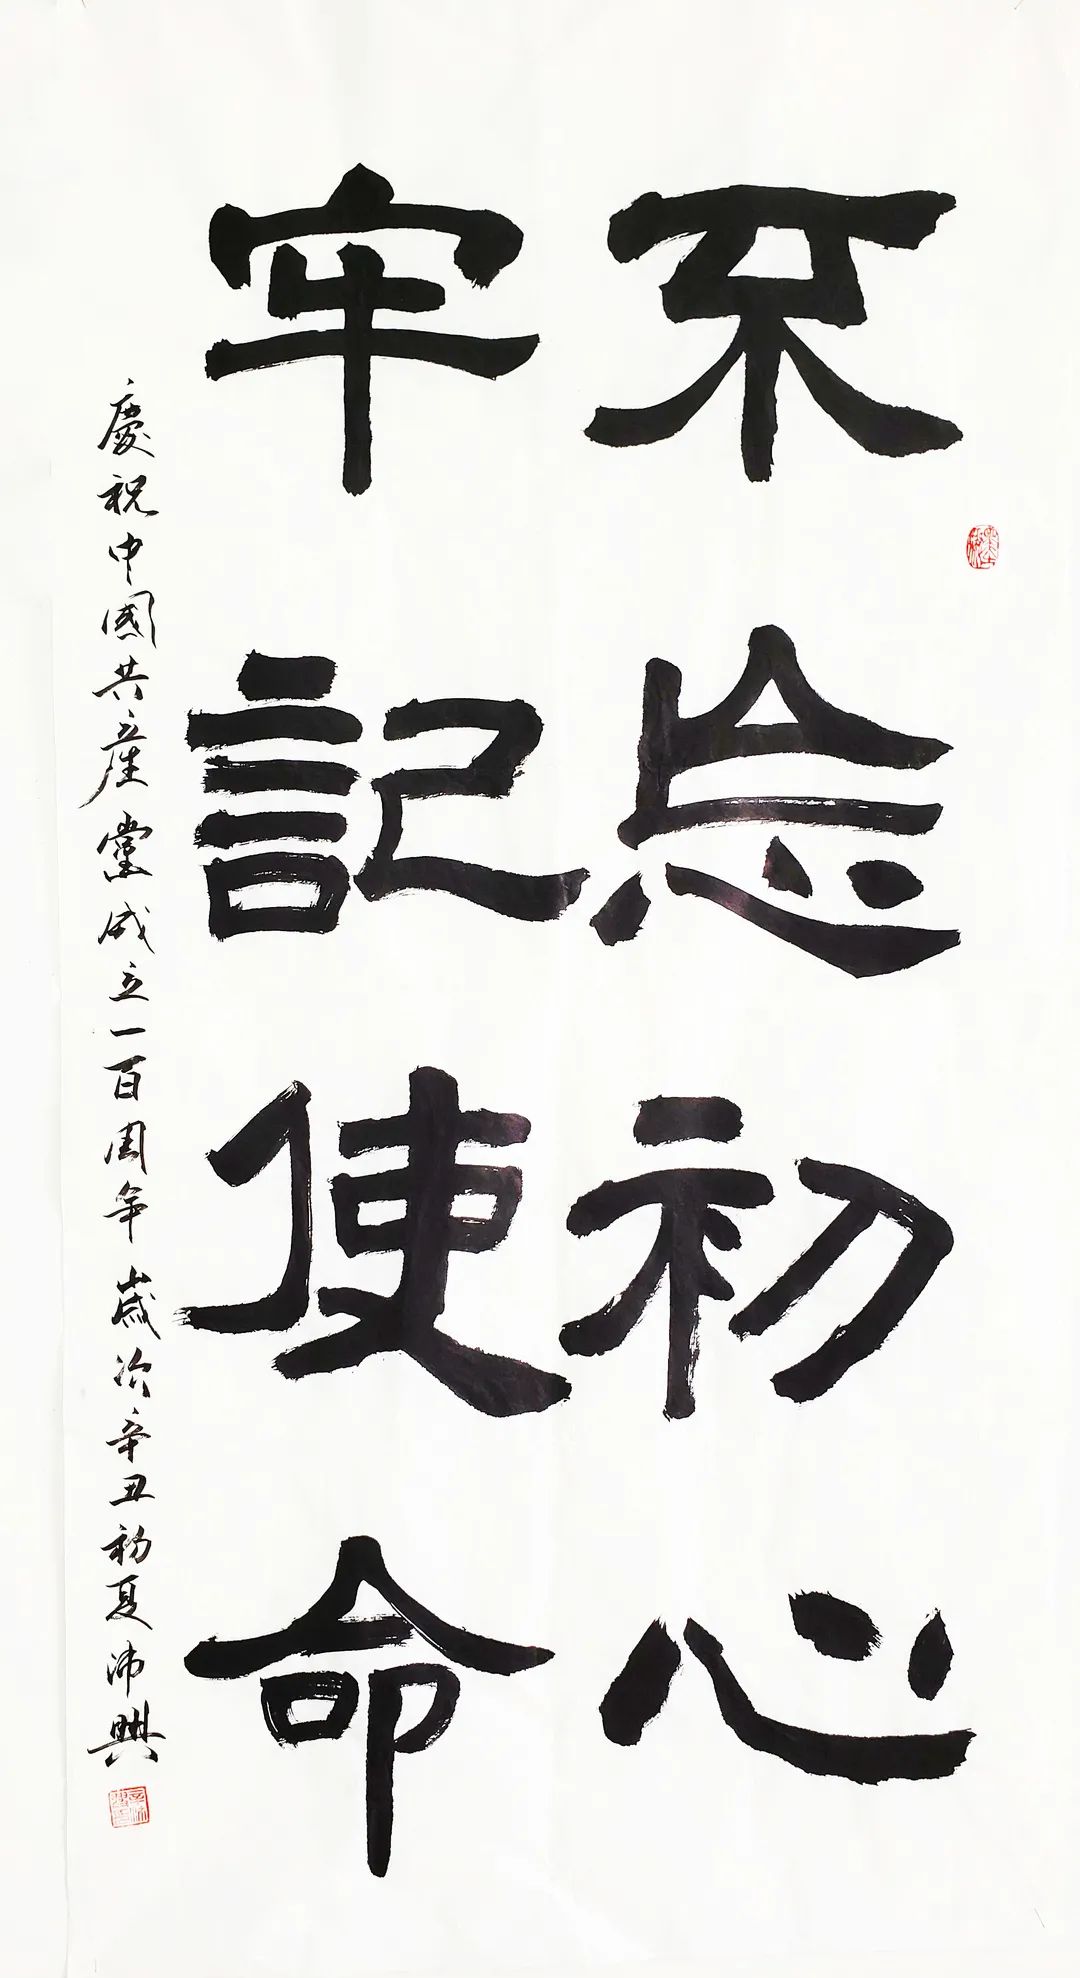 不忘初心
牢記使命
慶祝中國共產黨成立一百周年 歲次辛丑初夏沛興